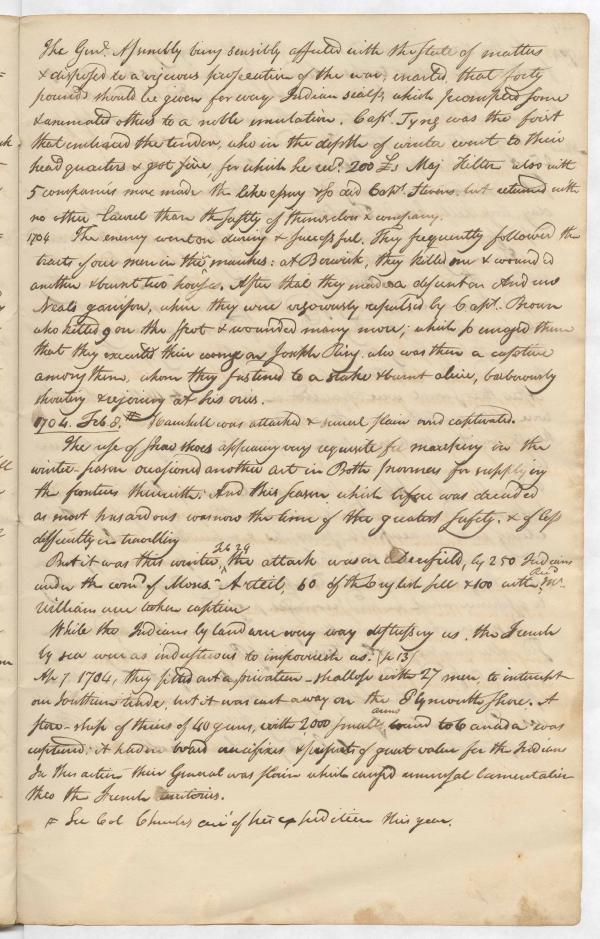 The Genl. Assembly being sensibly affected with the State of matters
& disposed to a vigorous prosecution of the war, enacted, that forty
pounds should be given for every Indian scalp, which prompted some
& animated others to a noble emulation. Capt. Tyng was the first
that embraced the tender, who in the depth of winter went to their
head quarters & got five, for which he recd. 200 £s Maj. Hilton also with
5 companies more made the like essay & so did Capt. Stevens. but returned with
no other Laurel than the safety of themselves & company.
1704 The enemy went on daring & successful. They frequently followed the
tracts of our men in their marches: at Berwick, they killed one & wounded
another & burnt two houses. After that they made a descent on Andrew
Neals garrison, where they were vigorously repulsed by Capt. Brown
who killed 9 on the spot & wounded many more; which so enraged them
that they executed their revenge on Joseph Ring, who was then a captive
among them, whom they fastened to a stake & burnt alive, barbarously
shouting & rejoicing at his cries.
1704. Feb 8. Haverhill was attacked & several slain and captivated.
The use of Snow shoes appearing very requisite for marching in the
winter-season occasioned another act in Both Provinces for supplying
the frontiers therewith: And this Season which before was dreaded
as most hazardous was now the time of the greatest Safety. & of less
difficulty in travelling
But it was this winter, Feb 29 the attack was on Deerfield, by 250 Indians
under the comd. of Monsr. Arteil, 60 of the English fell & 100 with Revd Mr.
William were taken captive
While the Indians by land were every way distressing us. the French
by sea were as industrious to impoverish us. (p 13)
Ap. 7 1704, they fitted out a privateer-shallop with 27 men, to intercept
our Southern trade, but it was cast away on the Plymouth Shore. A
store-ship of theirs of 40 guns, with 2,000 small arms bound to Canada was
captured; it had on board crucifixes & presents of great value for the Indians
In this action their General was slain which caused universal Lamentation
thro the French territories.
See Col Church's acct. of his expedition this year.